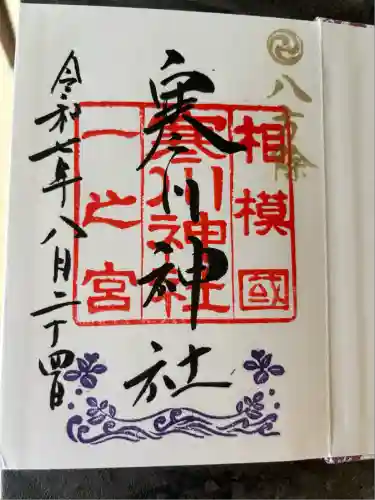 八方除
寒川神社
相模國
寒川神社
一之宮
令和七年八月二十四日